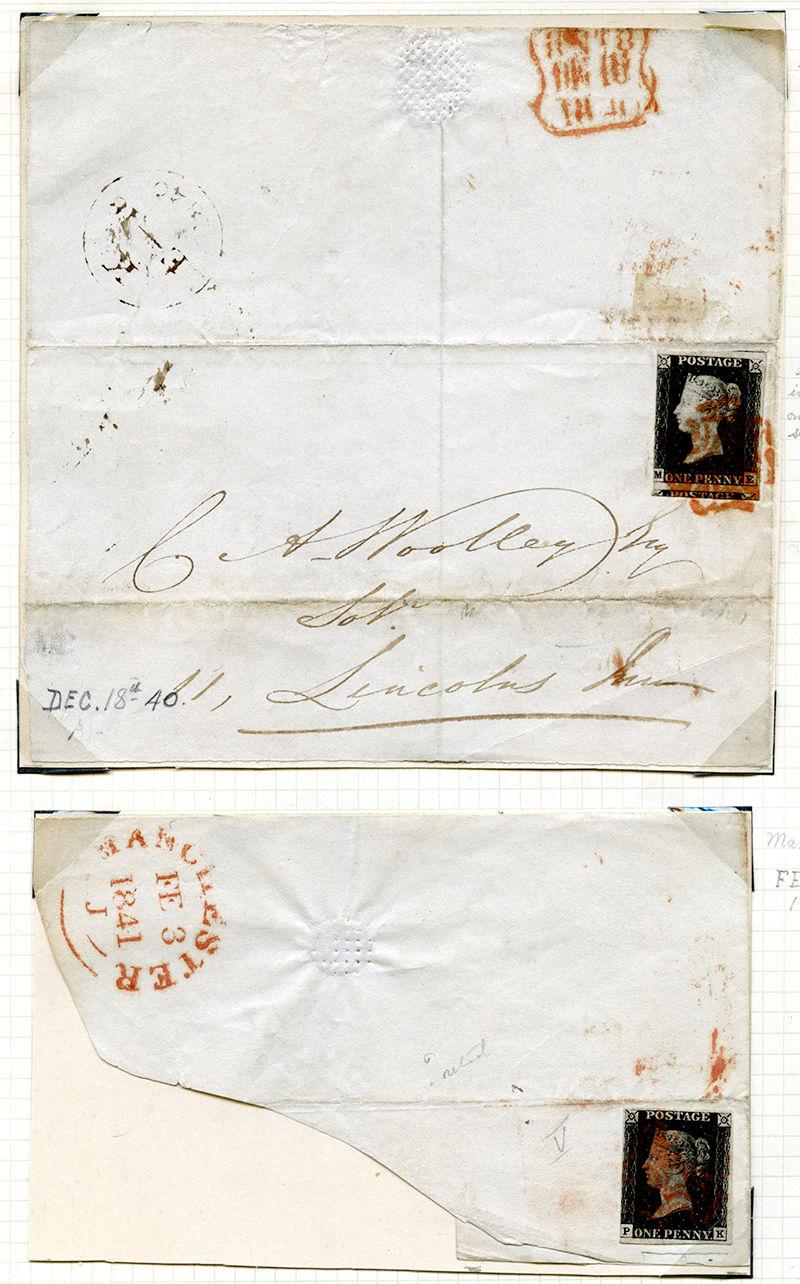 POSTAGE
M E
ONE PENNY
POSTAGE
C A Woolley Esq
Solr
11, Lincolns Inn
DEC. 18th 40.
MANCHESTER
FE 3
1841
J
Ma
FE
1
V
POSTAGE
P K
ONE PENNY